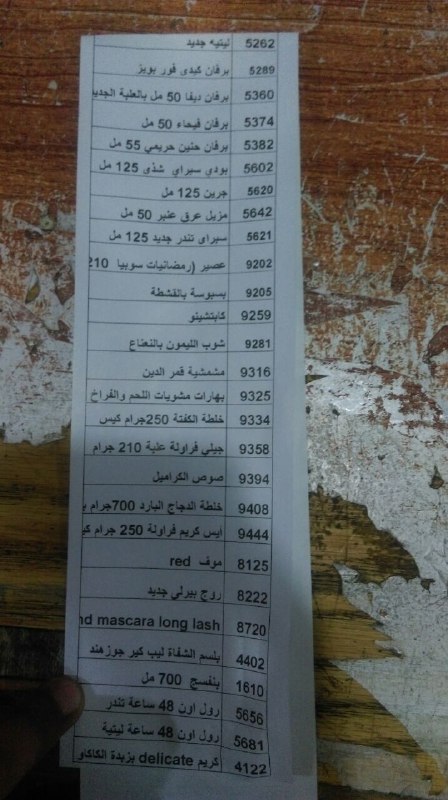 5262 ليتيه جديد
5289 برفان كيدى فور بويز
5360 برفان ديفا 50 مل بالعلبة الجديد
5374 برفان فيحاء 50 مل
5382 برفان حنين حريمي 55 مل
5602 بودي سبراي شذى 125 مل
5620 جرين 125 مل
5642 مزيل عرق عنبر 50 مل
5621 سبراى تندر جديد 125 مل
9202 عصير (رمضانيات سوبيا 210
9205 بسبوسة بالقشطة
9259 كابتشينو
9281 شوب الليمون بالنعناع
9316 مشمشية قمر الدين
9325 بهارات مشويات اللحم والفراخ
9334 خلطة الكفتة 250جرام كيس
9358 جيلي فراولة علبة 210 جرام
9394 صوص الكراميل
9408 خلطة الدجاج البارد 700جرام ب
9444 ايس كريم فراولة 250 جرام كي
8125 موف red
8222 روج بيرلي جديد
8720 nd mascara long lash
4402 بلسم الشفاة ليب كير جوزهند
1610 بنفسج 700 مل
5656 رول اون 48 ساعة تندر
5681 رول اون 48 ساعة ليتية
4122 كريم delicate بزبدة الكاكاو